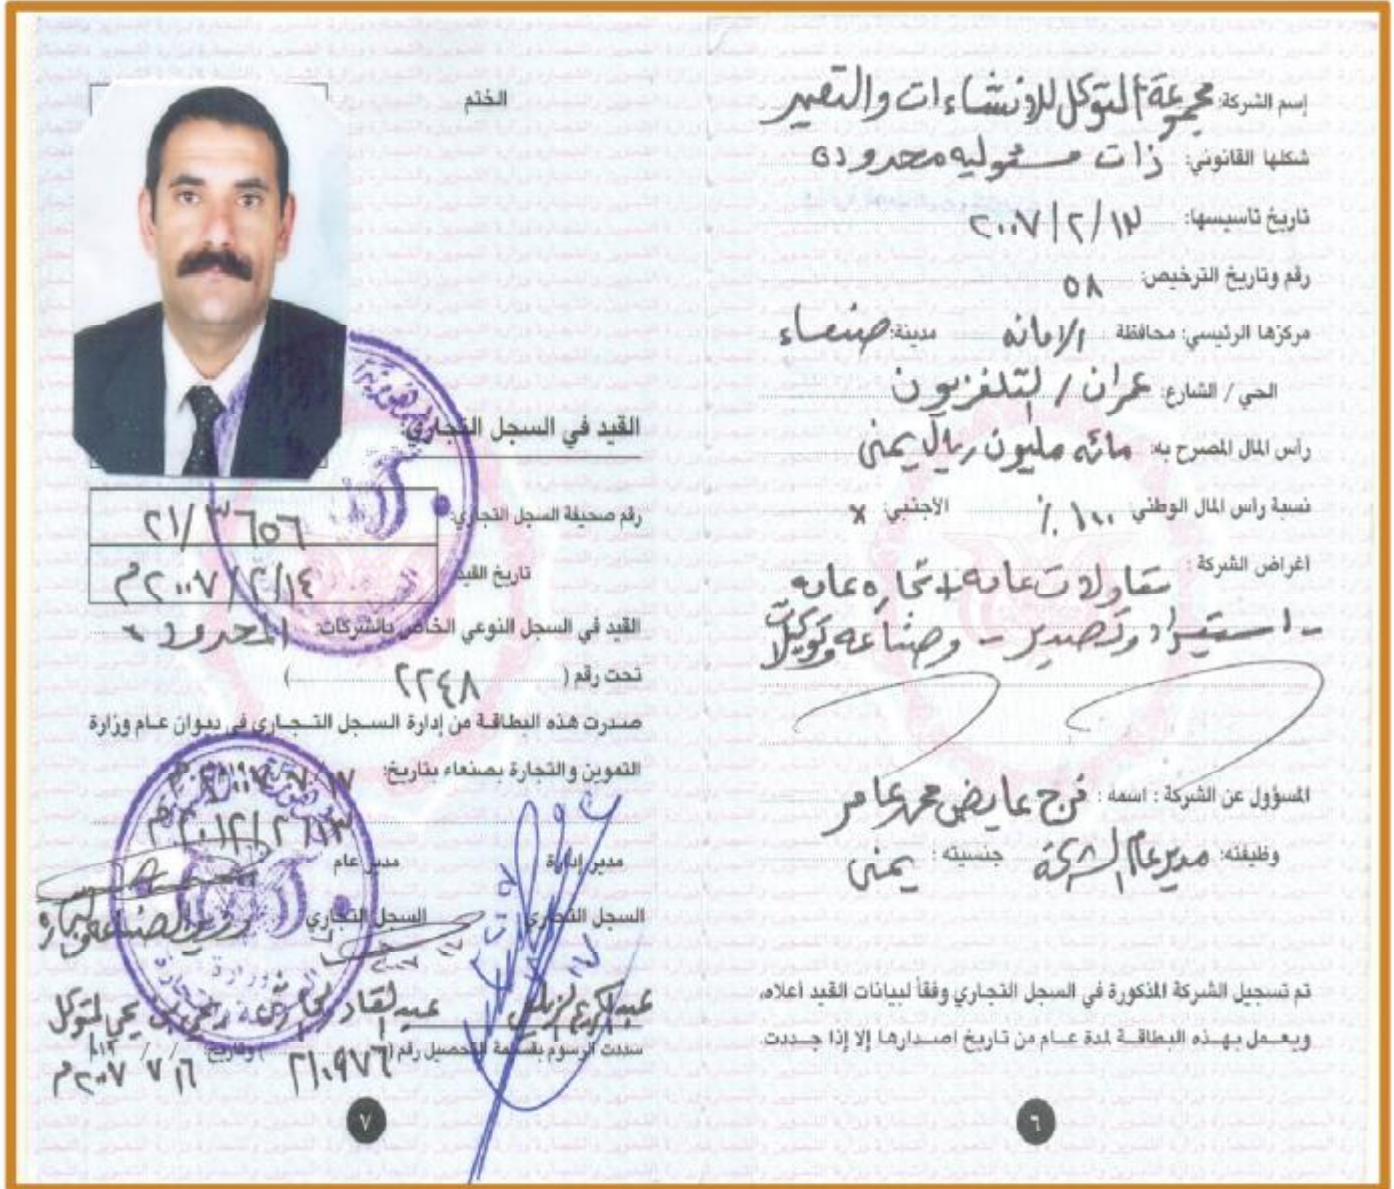 إسم الشركة: مجموعة المتوكل للإنشاءات والتعمير
شكلها القانوني: ذات مسئوليه محدوده
تاريخ تاسيسها: ٢٠٠٧/٢/١٣
رقم وتاريخ الترخيص: ٥٨
مركزها الرئيسي: محافظة الامانه مدينة: صنعاء
الحي / الشارع: عمران / التلفزيون
رأس المال المصرح به: مائه مليون ريال يمني
نسبة رأس المال الوطني: ١٠٠ ٪ الاجنبي: x
اغراض الشركة: مقاولات عامه + تجاره عامه
- استيراد وتصدير - وصناعه وتوكيلات
المسؤول عن الشركة: اسمه: فرج عايض محمد عامر
وظيفته: مدير عام الشركة جنسيته: يمني
تم تسجيل الشركة المذكورة في السجل التجاري وفقاً لبيانات القيد أعلاه،
ويعمل بهذه البطاقة لمدة عام من تاريخ اصدارها إلا إذا جددت
٦
الختم
القيد في السجل التجاري:
رقم صحيفة السجل التجاري: ٢١/٣٦٥٦
تاريخ القيد ٢٠٠٧/٢/١٤م
القيد في السجل النوعي الخاص بالشركات: المحدوده
تحت رقم ( ٢٢٤٨ )
صدرت هذه البطاقة من إدارة السجل التجاري في ديوان عام وزارة
التموين والتجارة بصنعاء بتاريخ:
مدير إدارة مدير عام
السجل التجاري السجل التجاري وزير الصناعة والتجارة
يحيى بن يحيى المتوكل
سددت الرسوم بقسيمة التحصيل رقم ( ٢١٠٩٧٦ ) وتاريخ
٧